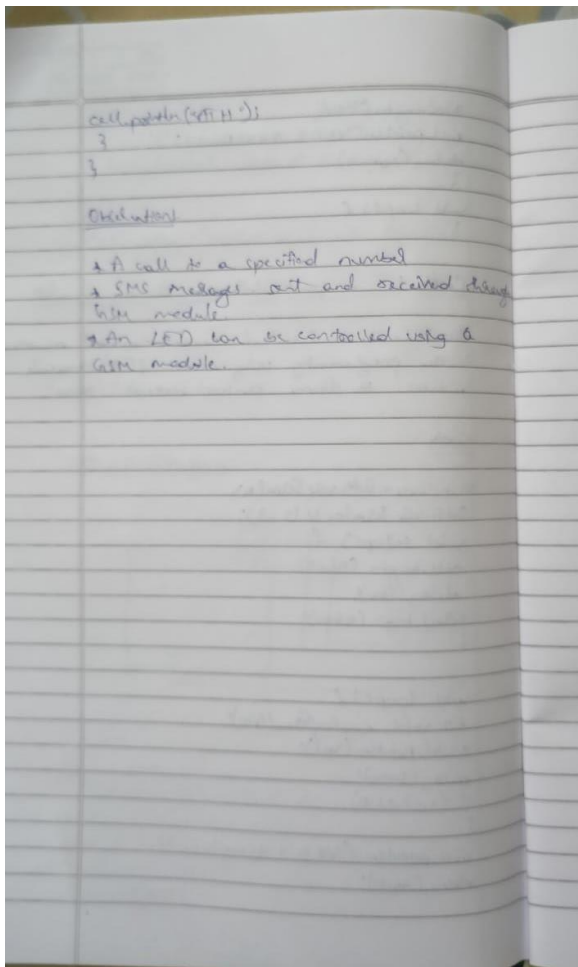 cell.println("ATH");
}
}
Observation
* A call to a specified number
* SMS messages sent and received through
GSM module.
* An LED can be controlled using a
GSM module.